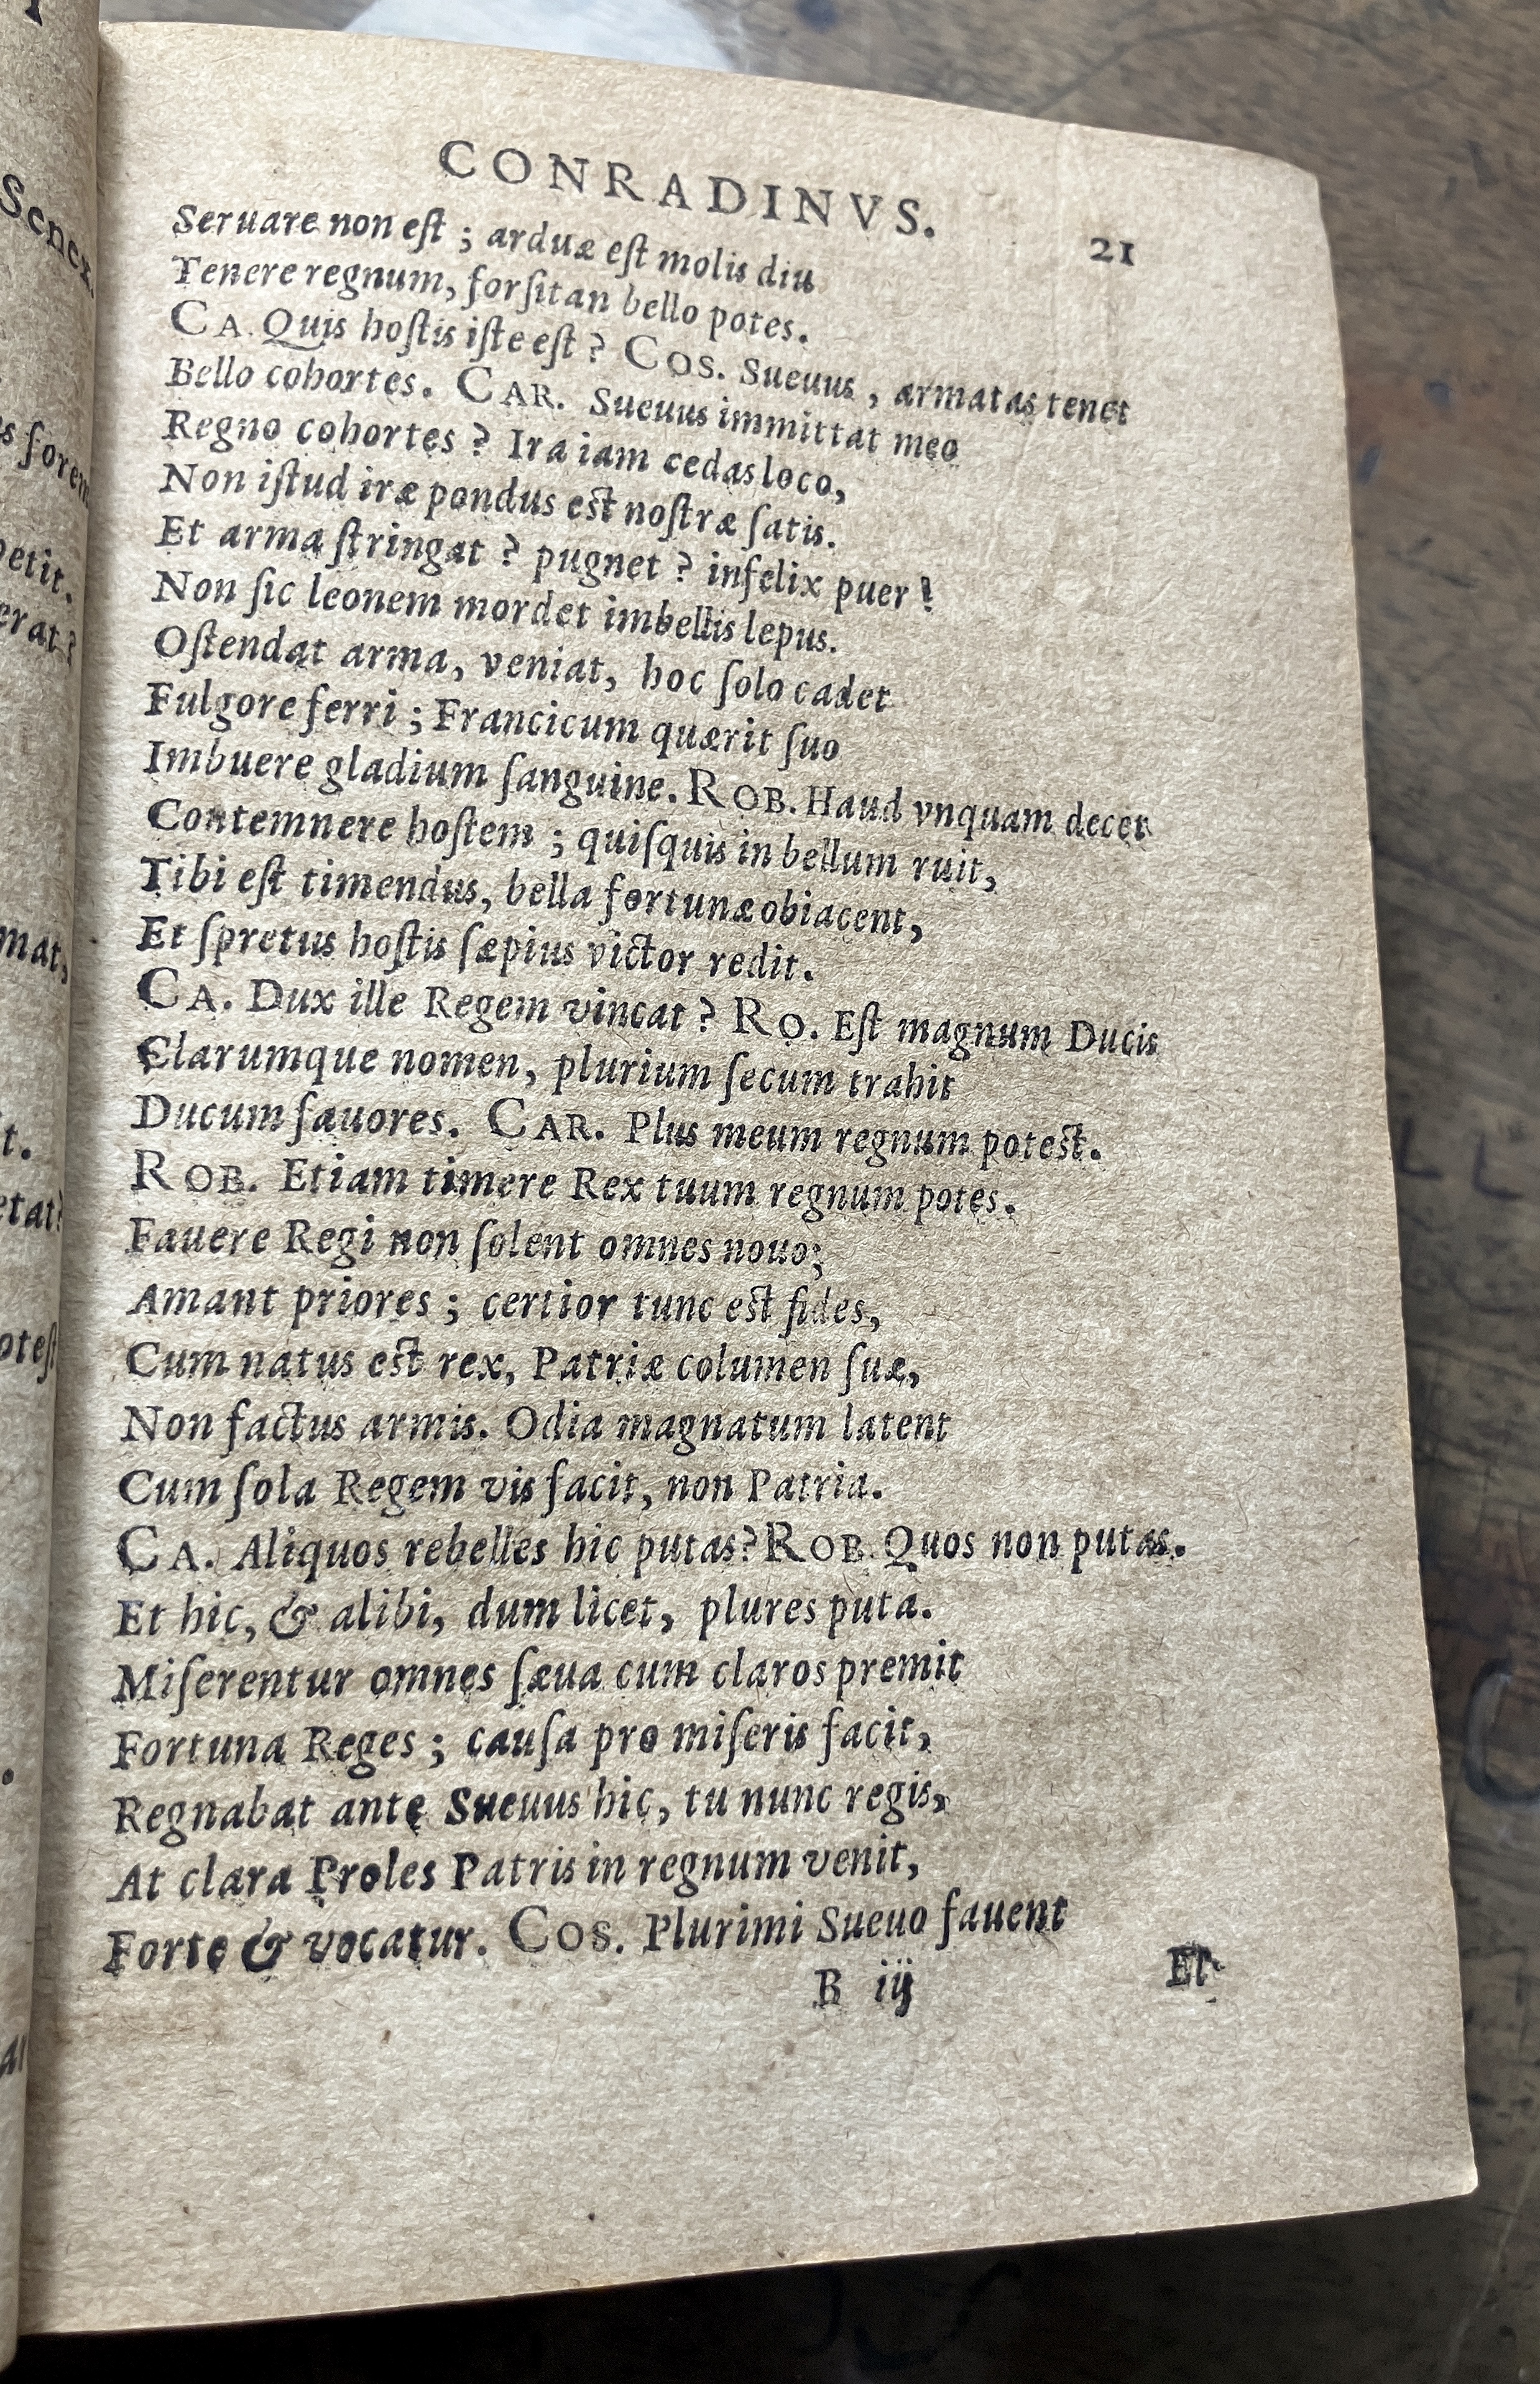 CONRADINVS.
21
Seruare non eſt ; arduæ eſt molis diu
Tenere regnum, forſitan bello potes.
CA. Quis hoſtis iſte eſt ? COS. Sueuus , armatas tenet
Bello cohortes. CAR. Sueuus immittat meo
Regno cohortes ? Ira iam cedas loco,
Non iſtud iræ pondus eſt noſtræ ſatis.
Et arma ſtringat ? pugnet ? infelix puer !
Non ſic leonem mordet imbellis lepus.
Oſtendat arma, veniat, hoc ſolo cadet
Fulgore ferri ; Francicum quærit ſuo
Imbuere gladium ſanguine. ROB. Haud vnquam decet
Contemnere hoſtem ; quiſquis in bellum ruit,
Tibi eſt timendus, bella fortunæ obiacent,
Et ſpretus hoſtis ſæpius victor redit.
CA. Dux ille Regem vincat ? RO. Eſt magnum Ducis
Clarumque nomen, plurium ſecum trahit
Ducum fauores. CAR. Plus meum regnum poteſt.
ROB. Etiam timere Rex tuum regnum potes.
Fauere Regi non ſolent omnes nouo;
Amant priores ; certior tunc eſt fides,
Cum natus eſt rex, Patriæ columen ſuæ,
Non factus armis. Odia magnatum latent
Cum ſola Regem vis facit, non Patria.
CA. Aliquos rebelles hic putas? ROB. Quos non putas.
Et hic, & alibi, dum licet, plures puta.
Miſerentur omnes ſæua cum claros premit
Fortuna Reges ; cauſa pro miſeris facit,
Regnabat ante Sueuus hic, tu nunc regis,
At clara Proles Patris in regnum venit,
Forte & vocatur. COS. Plurimi Sueuo fauent
B iij
Et